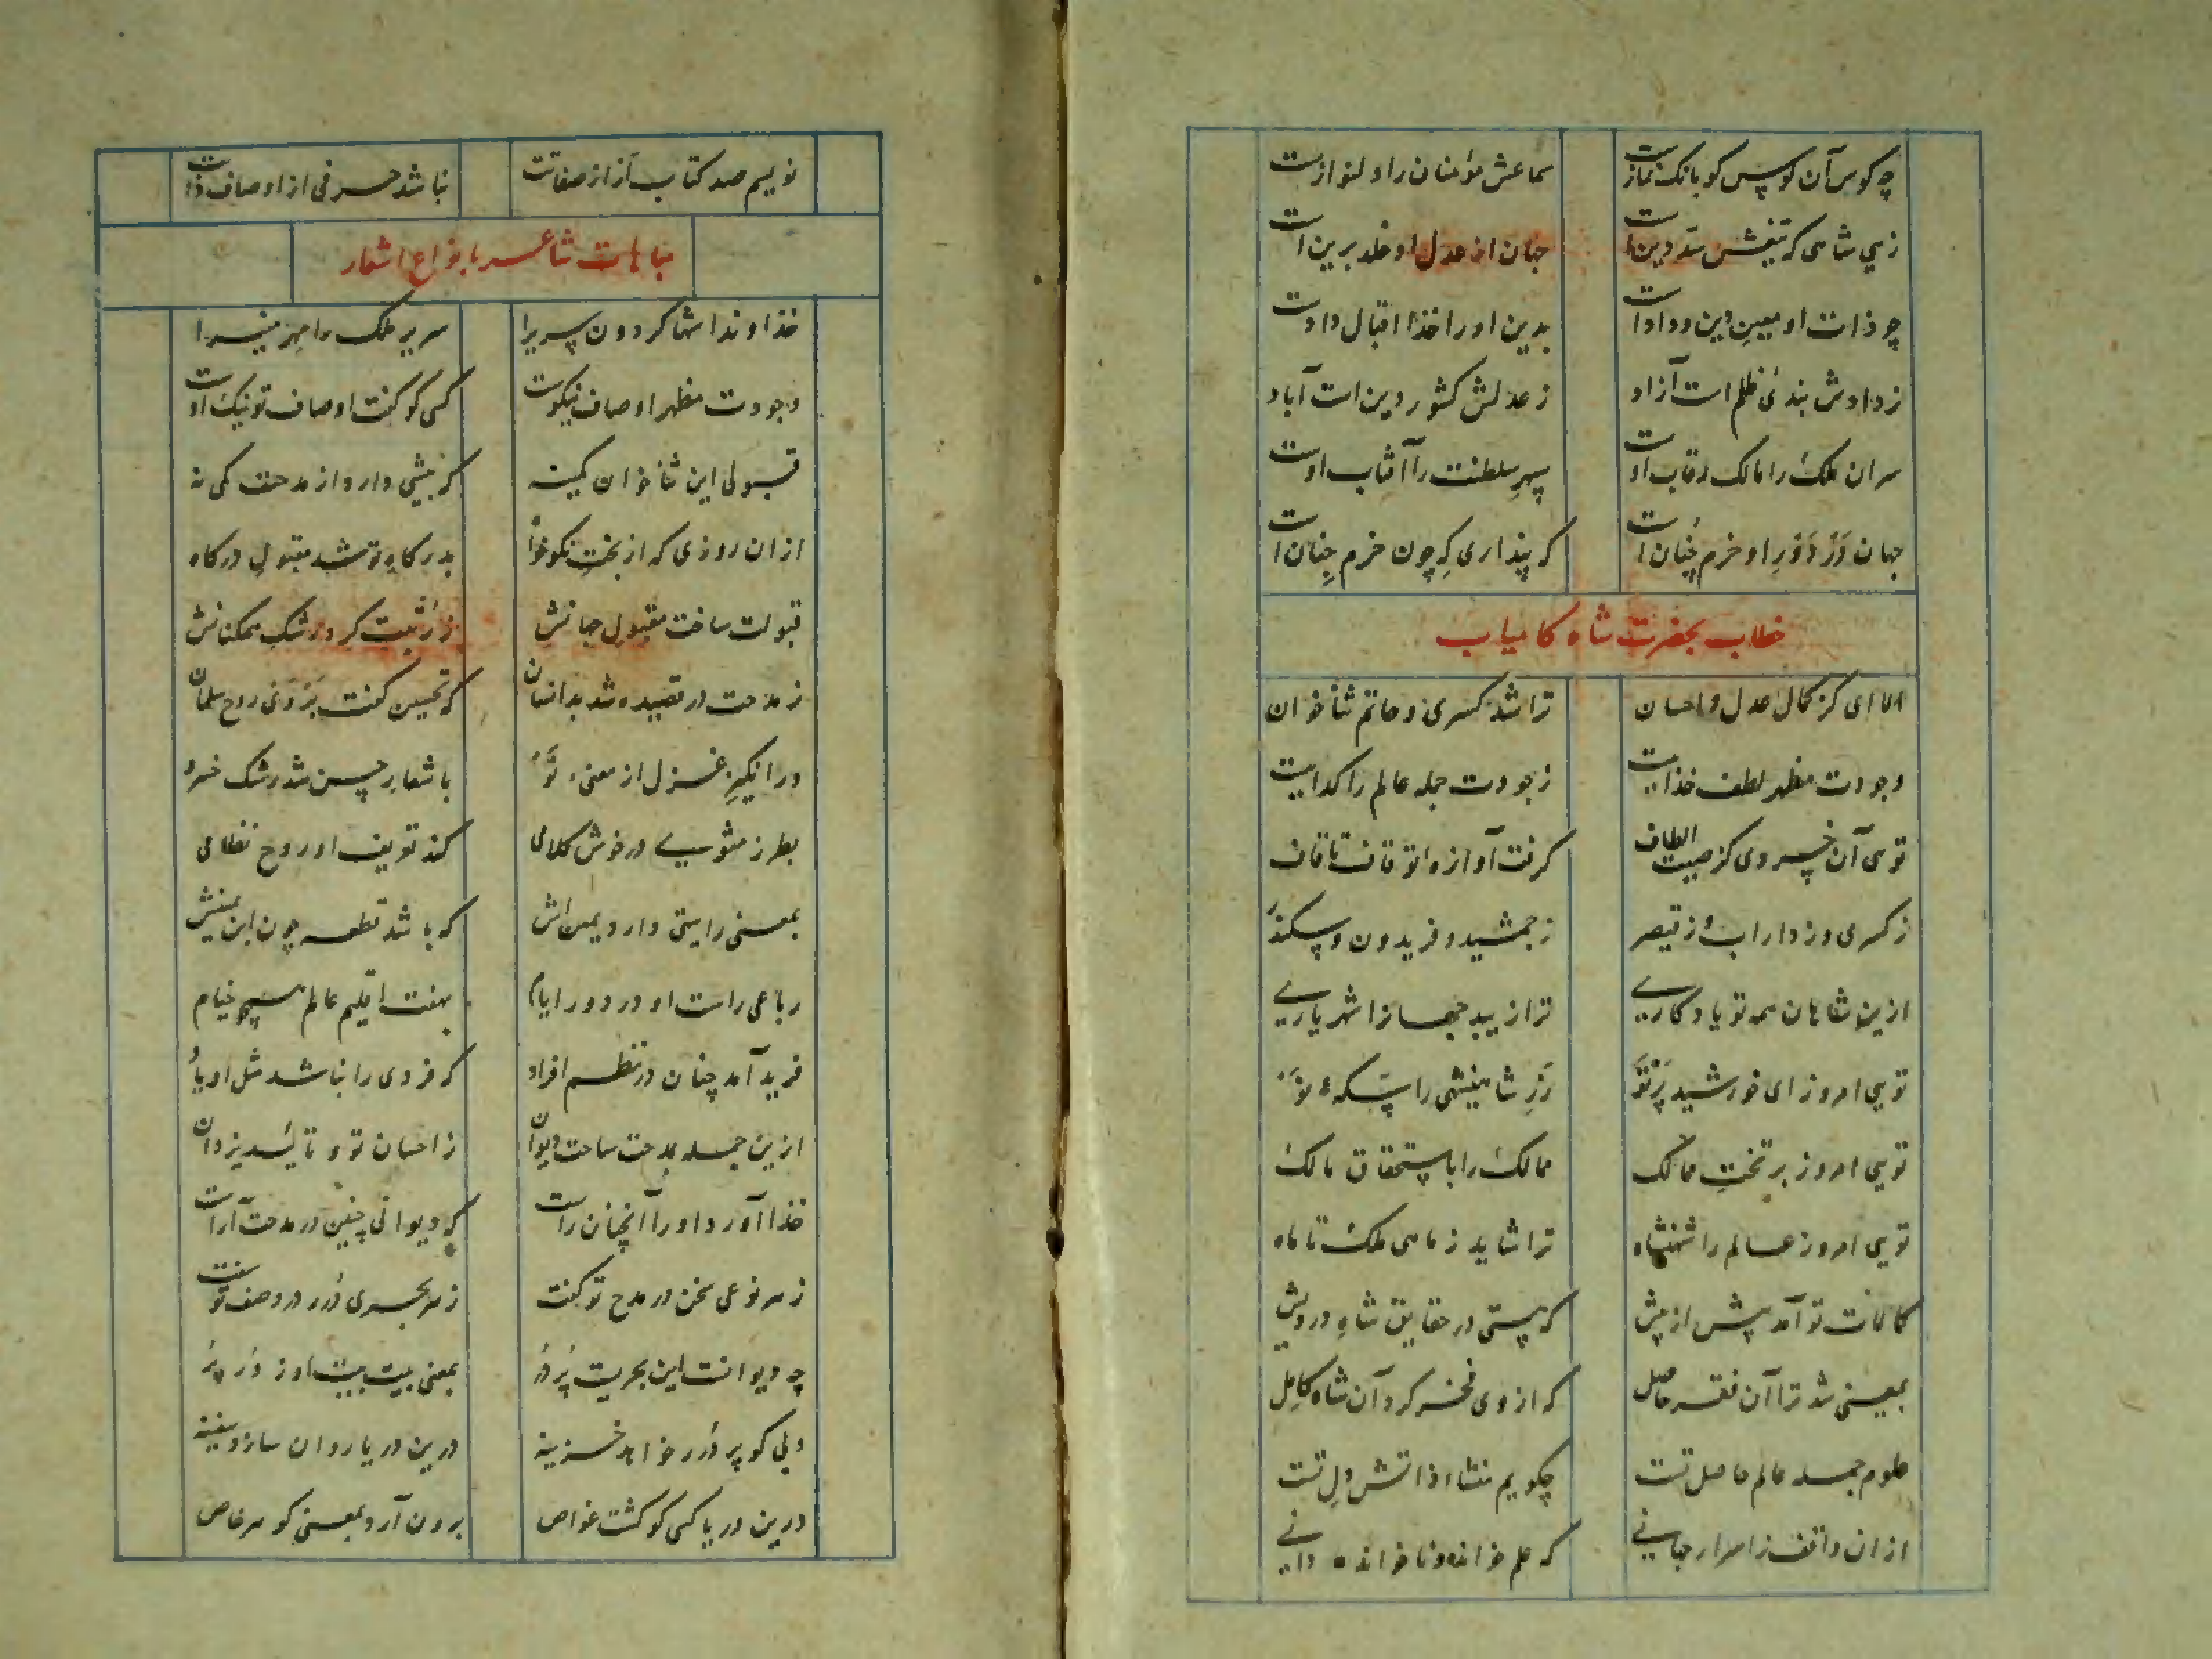 چه کوس آن کوس کو بانک نمازست
سماعش مؤمنان را دلنوازست
زهی شاهی که تیغش سد دین است
جهان از عدل او خلد برین است
چو ذات او معین دین و داد است
بدین او را خذا اقبال دادست
ز دادش بندهٔ ظلم است آزاد
ز عدلش کشور دین است آباد
سران ملک را مالک رقاب اوست
سپهر سلطنت را آفتاب اوست
جهان در دَورِ او خرم چُنان است
که پنداری که چون خرم جِنان است
خطاب بحضرت شاه کامیاب
الا ای کز کمال عدل و احسان
ترا شد کسری و حاتم ثناخوان
وجودت مظهر لطف خذایست
ز جودت جمله عالم را کدایست
توی آن خسروی کز صیت الطاف
کرفت آوازهٔ تو قاف تا قاف
ز کسری وز داراب وز قیصر
ز جمشید و فریدون و سکندر
ازین شاهان همه تو یادکاریی
ترا زیبد جهانرا شهریاریی
تویی امروز ای خورشید پَرتَو
زرِ شاهنشهی را سکهٔ نَو
تویی امروز بر تختِ ممالک
ممالک را باستحقاق مالک
تویی امروز عالم را شهنشاه
ترا شاید ز ماهی ملک تا ماه
کمالات تو آمد پیش از پیش
که هستی در حقایق شاهِ درویش
بمعنی شد ترا آن فقر حاصل
که از وی فخر کرد آن شاه کامِل
علوم جمله عالم حاصل تست
چکویم منشاء دانش دلِ تست
ازان واقف ز اسرار جهانی
که علم خوانده و ناخوانده دانی
نویسم صد کتاب آر از صفاتت
نباشد حرفی از اوصاف ذاتت
مباهات شاعر بانواع اشعار
خذاوندا شها کردون سریرا
سریر ملک را مهر منیرا
وجودت مظهر اوصاف نیکوست
کسی کو کفت اوصاف تو نیک اوست
قبولی این ثناخوان کمینه
که بیشی دارد از مدحت کمی نه
ازان روزی که از بختِ نکوخواه
بدرکاهِ تو شد مقبولِ درکاه
قبولت ساخت مقبولِ جهانش
ز مدحت در قصیده شد بدانسان
که تحسین کفت بَر وَی روح سلمان
در انکیزِ غزل از معنیِٔ نَو
باشعارِ حسن شد رشک خسرو
بطرز مثنویی در خوش کلامی
کند تعریف او روح نظامی
بمعنی رایتی دارد یمین‌اش
که باشد قطعه چون ابن یمینش
رباعی راست او در دور ایام
بهفت اقلیم عالم همچو خیام
فرید آمد چنان در نظم افراد
که فردی را نباشد مثل او یاد
ازین جمله بمدحت ساخت دیوان
ز احسان تو و تایید یزدان
خذا آورد او را آنچنان راست
که دیوانی چنین در مدحت آراست
ز هر نوعی سخن در مدح تو کفت
ز هر بحری دُرر در وصف تو سفت
چه دیوانست این بحریست پُر دُر
بمعنی بیت بیت او ز دُر پُر
ولی کو پر دُرر خواهد خزینه
درین دریا روان سازد سفینه
درین دریا کسی کو کشت غواص
برون آرد بمعنی کوهر خاص